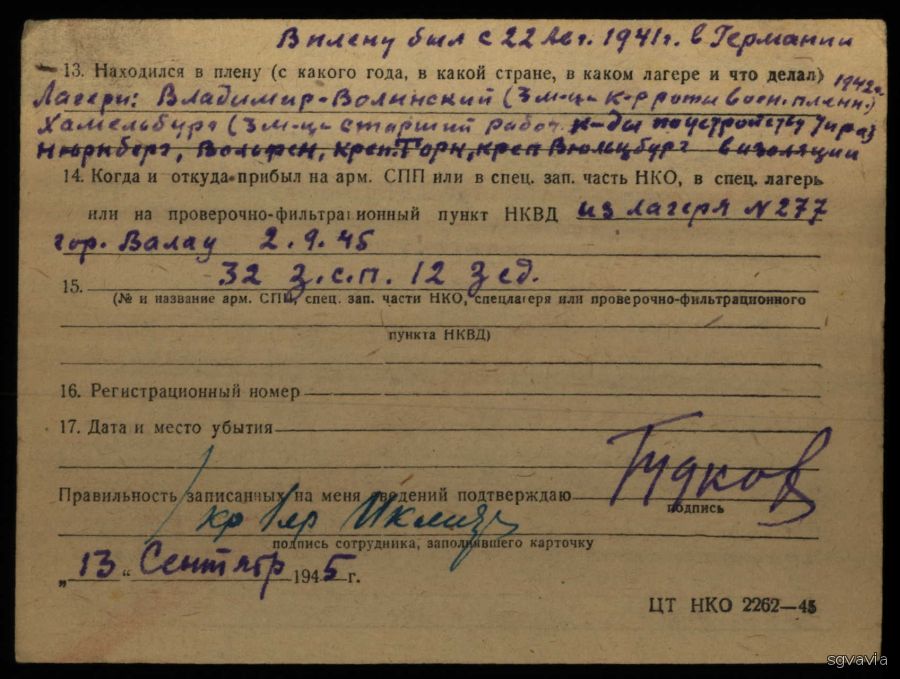 В плену был с 22 Авг. 1941г. в Германии
13. Находился в плену (с какого года, в какой стране, в каком лагере и что делал)
1942г.
Лагери: Владимир-Волынский (3 м-ца к-р роты воен. пленн.)
Хамельбург (3 м-ца старший работ. к-ды по устройству
Нюрнберг, Вольфен, креп. Торн, креп Вюлцбург в изоляции
14. Когда и откуда прибыл на арм. СПП или в спец. зап. часть НКО, в спец. лагерь
или на проверочно-фильтрационный пункт НКВД из лагеря N 277
гор. Валау 2.9.45
15. 32 з.с.п. 12 зсд.
(№ и название арм. СПП, спец. зап. части НКО, спецлагеря или проверочно-фильтрационного
пункта НКВД)
16. Регистрационный номер
17. Дата и место убытия
Правильность записанных на меня сведений подтверждаю Гудков
подпись
подпись сотрудника, заполнявшего карточку
„13“ Сентябр 1945 г.
ЦТ НКО 2262—45
sgvavia